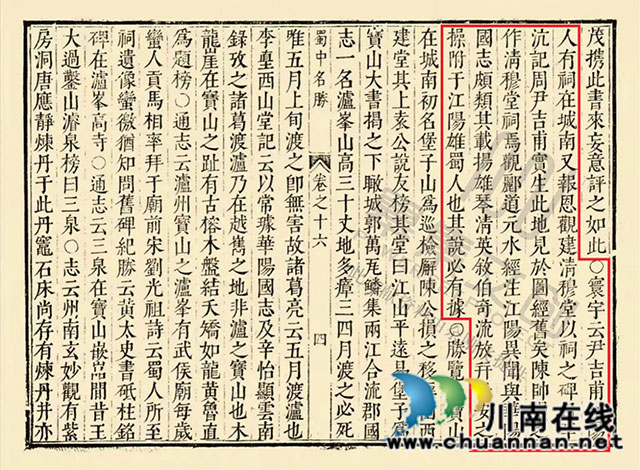 茂携此書來妄意評之如此○寰宇云尹吉甫
人有祠在城南又報恩觀建清穆堂以祠之碑
沇記周尹吉甫實生此地見於圖經舊矣陳帥
作清穆堂祠焉觀酈道元水經注江陽異聞與
國志頗類其載揚雄琴清英敘伯奇流放
操附于江陽雄蜀人也其說必有據○勝覽寶山
在城南初名堡子山為巡檢廨陳公損之移西
建堂其上袁公說友榜其堂曰江山平遠易堡子
寶山大書揭之下瞰城郭萬瓦鱗集兩江合流郡國
志一名瀘峯山高三十丈地多瘴三四月渡之必死
蜀中名勝 卷之十六 四
唯五月上旬渡之卽無害故諸葛亮云五月渡瀘也
李𡌴西山堂記云以常璩華陽國志及辛怡顯雲南
錄攷之諸葛渡瀘乃在越嶲之地非瀘之寶山也木
龍崖在寶山之趾有古榕木盤結夭矯如龍黃魯直
為題榜○通志云瀘州寶山之瀘峯有武侯廟每歲
蠻人貢馬相率拜于廟前宋劉光祖詩云蜀人所至
祠遺像蠻徼猶知問舊碑紀勝云黃太史書砥柱銘
碑在瀘峯高寺○通志云三泉在寶山嵌嵓間昔王
大過鑿山濬泉榜曰三泉○志云州南玄妙觀有紫
房洞唐應靜煉丹于此丹竈石床尚存有煉丹井亦
川南在线
www.chuannan.net